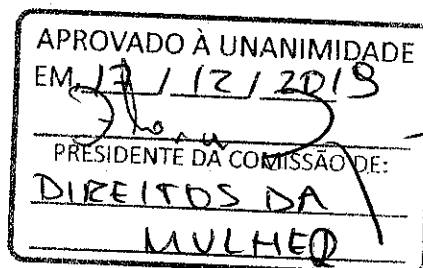 APROVADO À UNANIMIDADE
EM 17 / 12 / 2019
PRESIDENTE DA COMISSÃO DE:
DIREITOS DA
MULHER